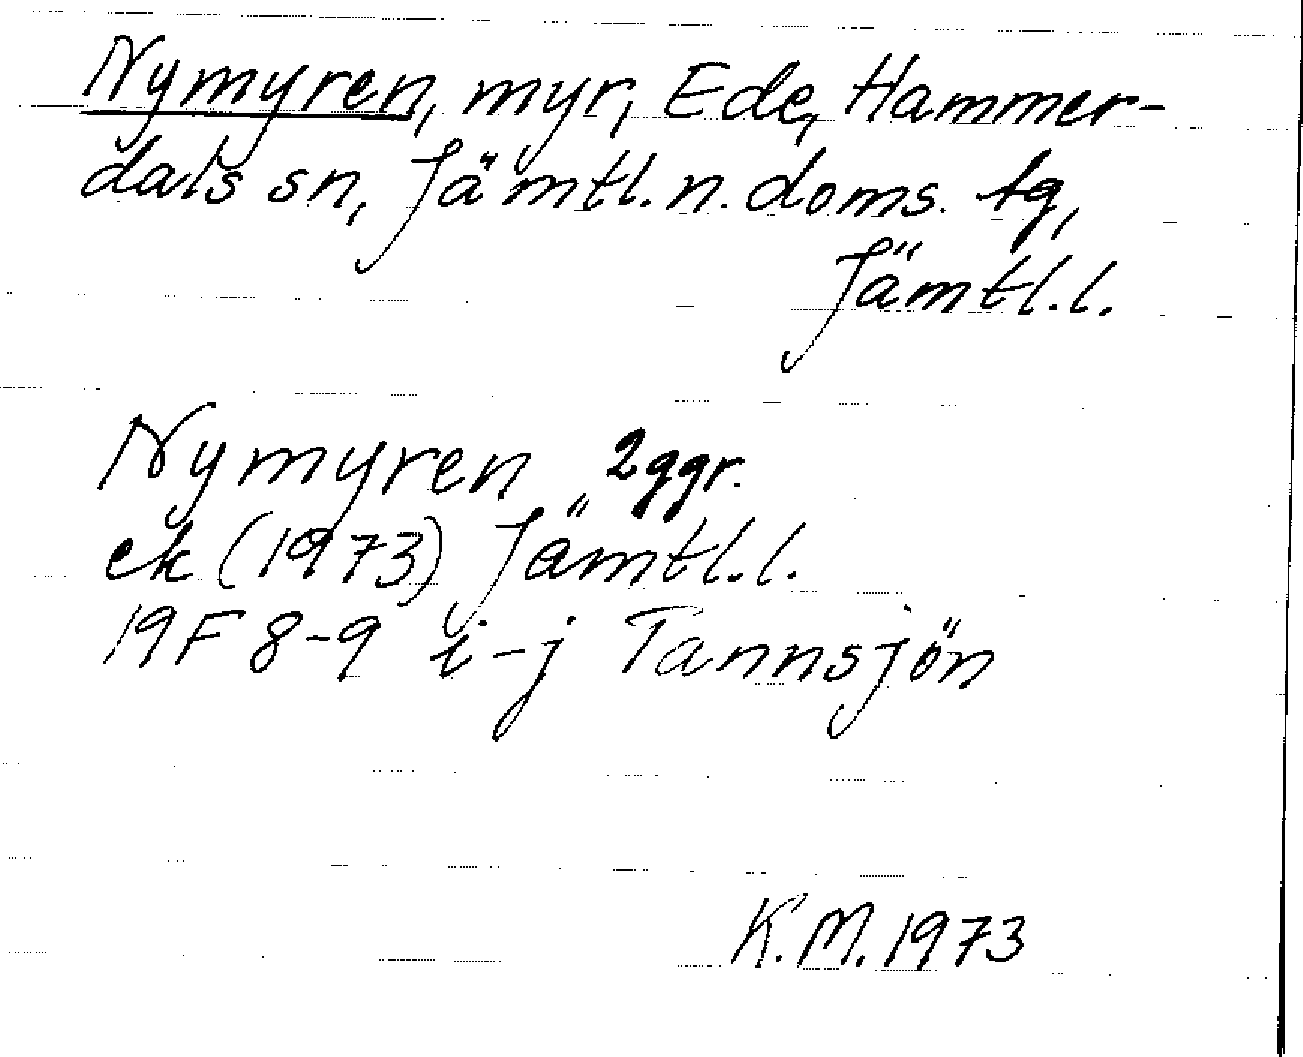 Nymyren, myr, Ede, Hammer-
dals sn, Jämtl. n. doms. tg,
Jämtl. l.
Nymyren 2 ggr.
ek (1973) Jämtl. l.
19F 8-9 i-j Tannsjön
K.M. 1973